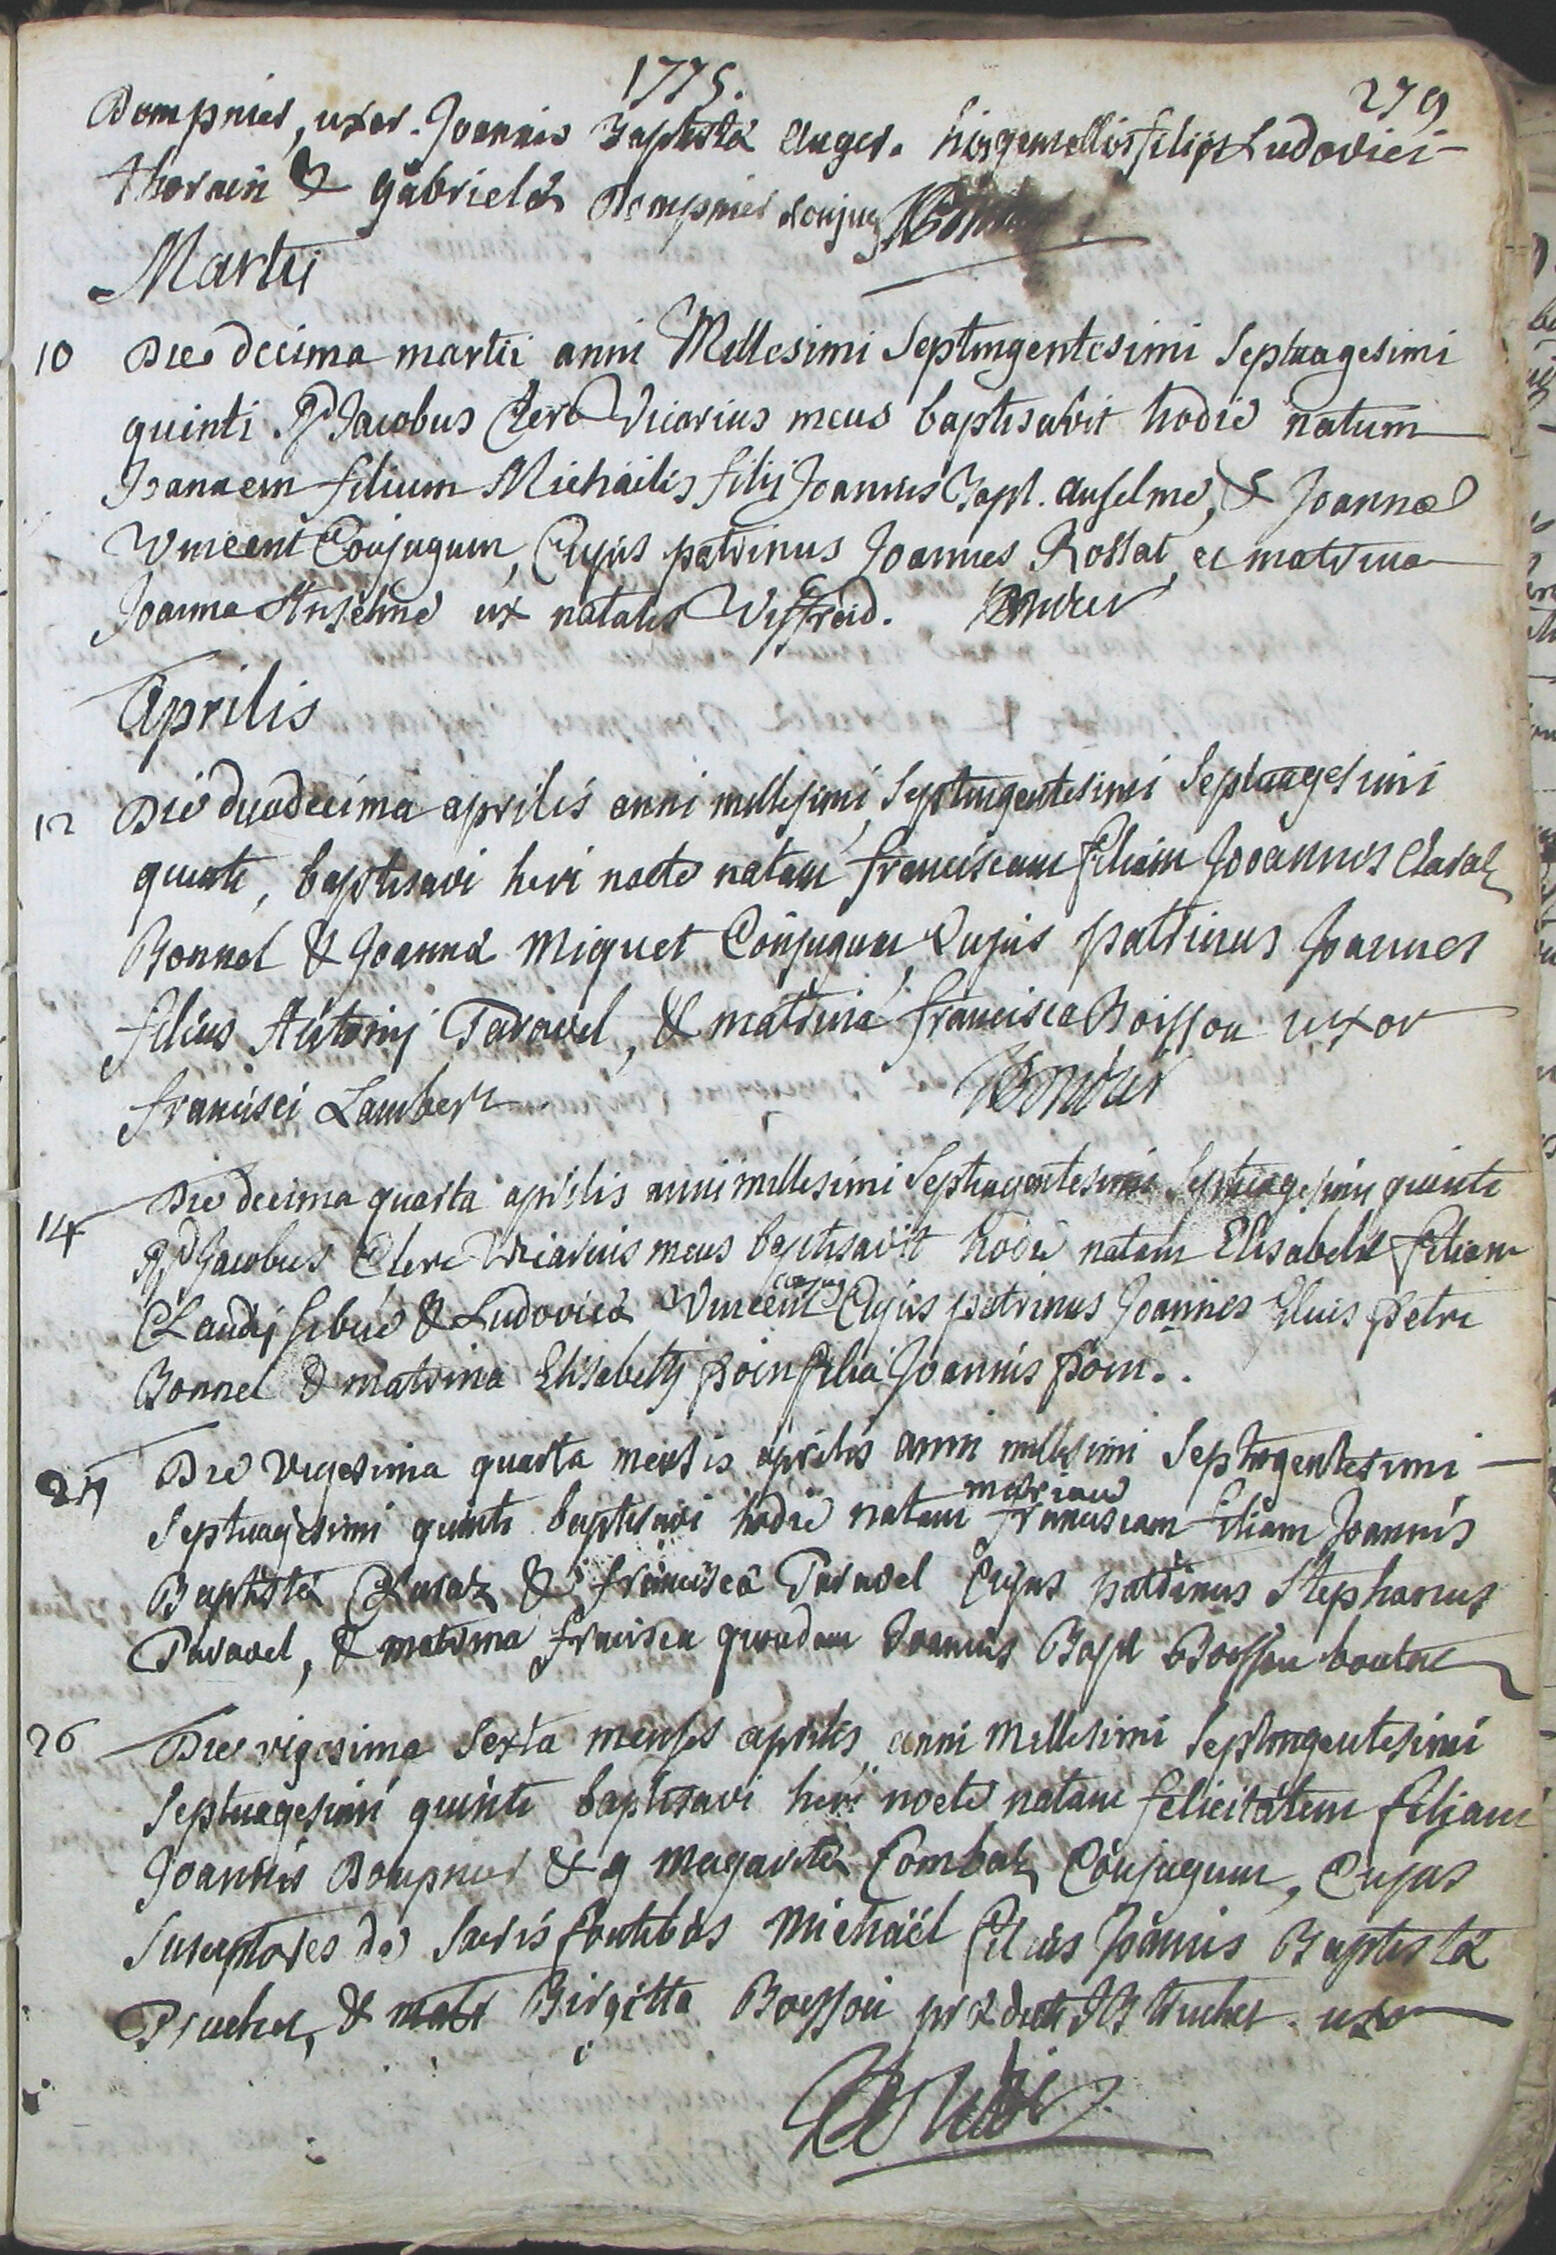 1775.
279
Dompnier, uxor. Joannis Baptistæ Auger. hisgemellis filijs Ludovici
thorain & Gabrielæ Dompnier conjug
Martii
10 Die decima martii anni Millesimi Septingentesimi Septuagesimi
quinti. Rd Jacobus Clerc Vicarius meus baptisavit hodie natum
Joannem filium Michäelis filii Joannis Bapt. Anselme, & Joannæ
Vincent Conjugum, Cujus patrinus Joannes Rostat et matrina
Joanna Anselme ux natalis Viffreid.
Aprilis
12 Die duodecima aprilis anni millesimi Septingentesimi Septuagesimi
quinti, baptisavi heri nocte natam franciscam filiam Joannis Claraz
Bonnel & Joannæ Miquet Conjugum Cujus patrinus Joannes
filius Antonij Taravel, & matrina francisca Boisson uxor
francisci Lambert.
14 Die decima quarta aprilis anni millesimi Septingentesimi Septuagesimi quinti
Rd Jacobus Clerc Vicarius meus baptisavit hodie natam Elisabeth filiam
Claudij Sibué & Ludovicæ Vincent conjug Cujus patrinus Joannes filius petri
Bonnel & matrina Elisabeth poin filia Joannis poin..
24 Die vigesima quarta mensis aprilis anni millesimi Septingentesimi
mariam
Septuagesimi quinti baptisavi hodie natam franciscam filiam Joannis
Baptistæ Claraz & franciscæ Taravel Cujus patrinus Stephanus
Taravel, & matrina francisca quondam Joannis Bapt Boisson
26 Die vigesima Sexta mensis aprilis anni Millesimi Septingentesimi
Septuagesimi quinti baptisavi heri nocte natam felicitatem filiam
Joannis Dompnier & g Magaritæ Combaz Conjugum, Cujus
Susceptores de Sacris fontibus Michäel filius Joannis Baptistæ
Truchet, & matr Birgitta Boisson prædicti JB truchet. uxor